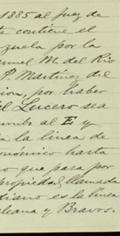 1885 al juez de
te contiene el
zuela por la
muel M. del Rio
P. Martinez del
cion, por haber
il Lucero sea
umbo al E y
a la linea de
onómico hasta
o que pasa por
propiedad llamada
tiano es la linea
leana y Bravos.